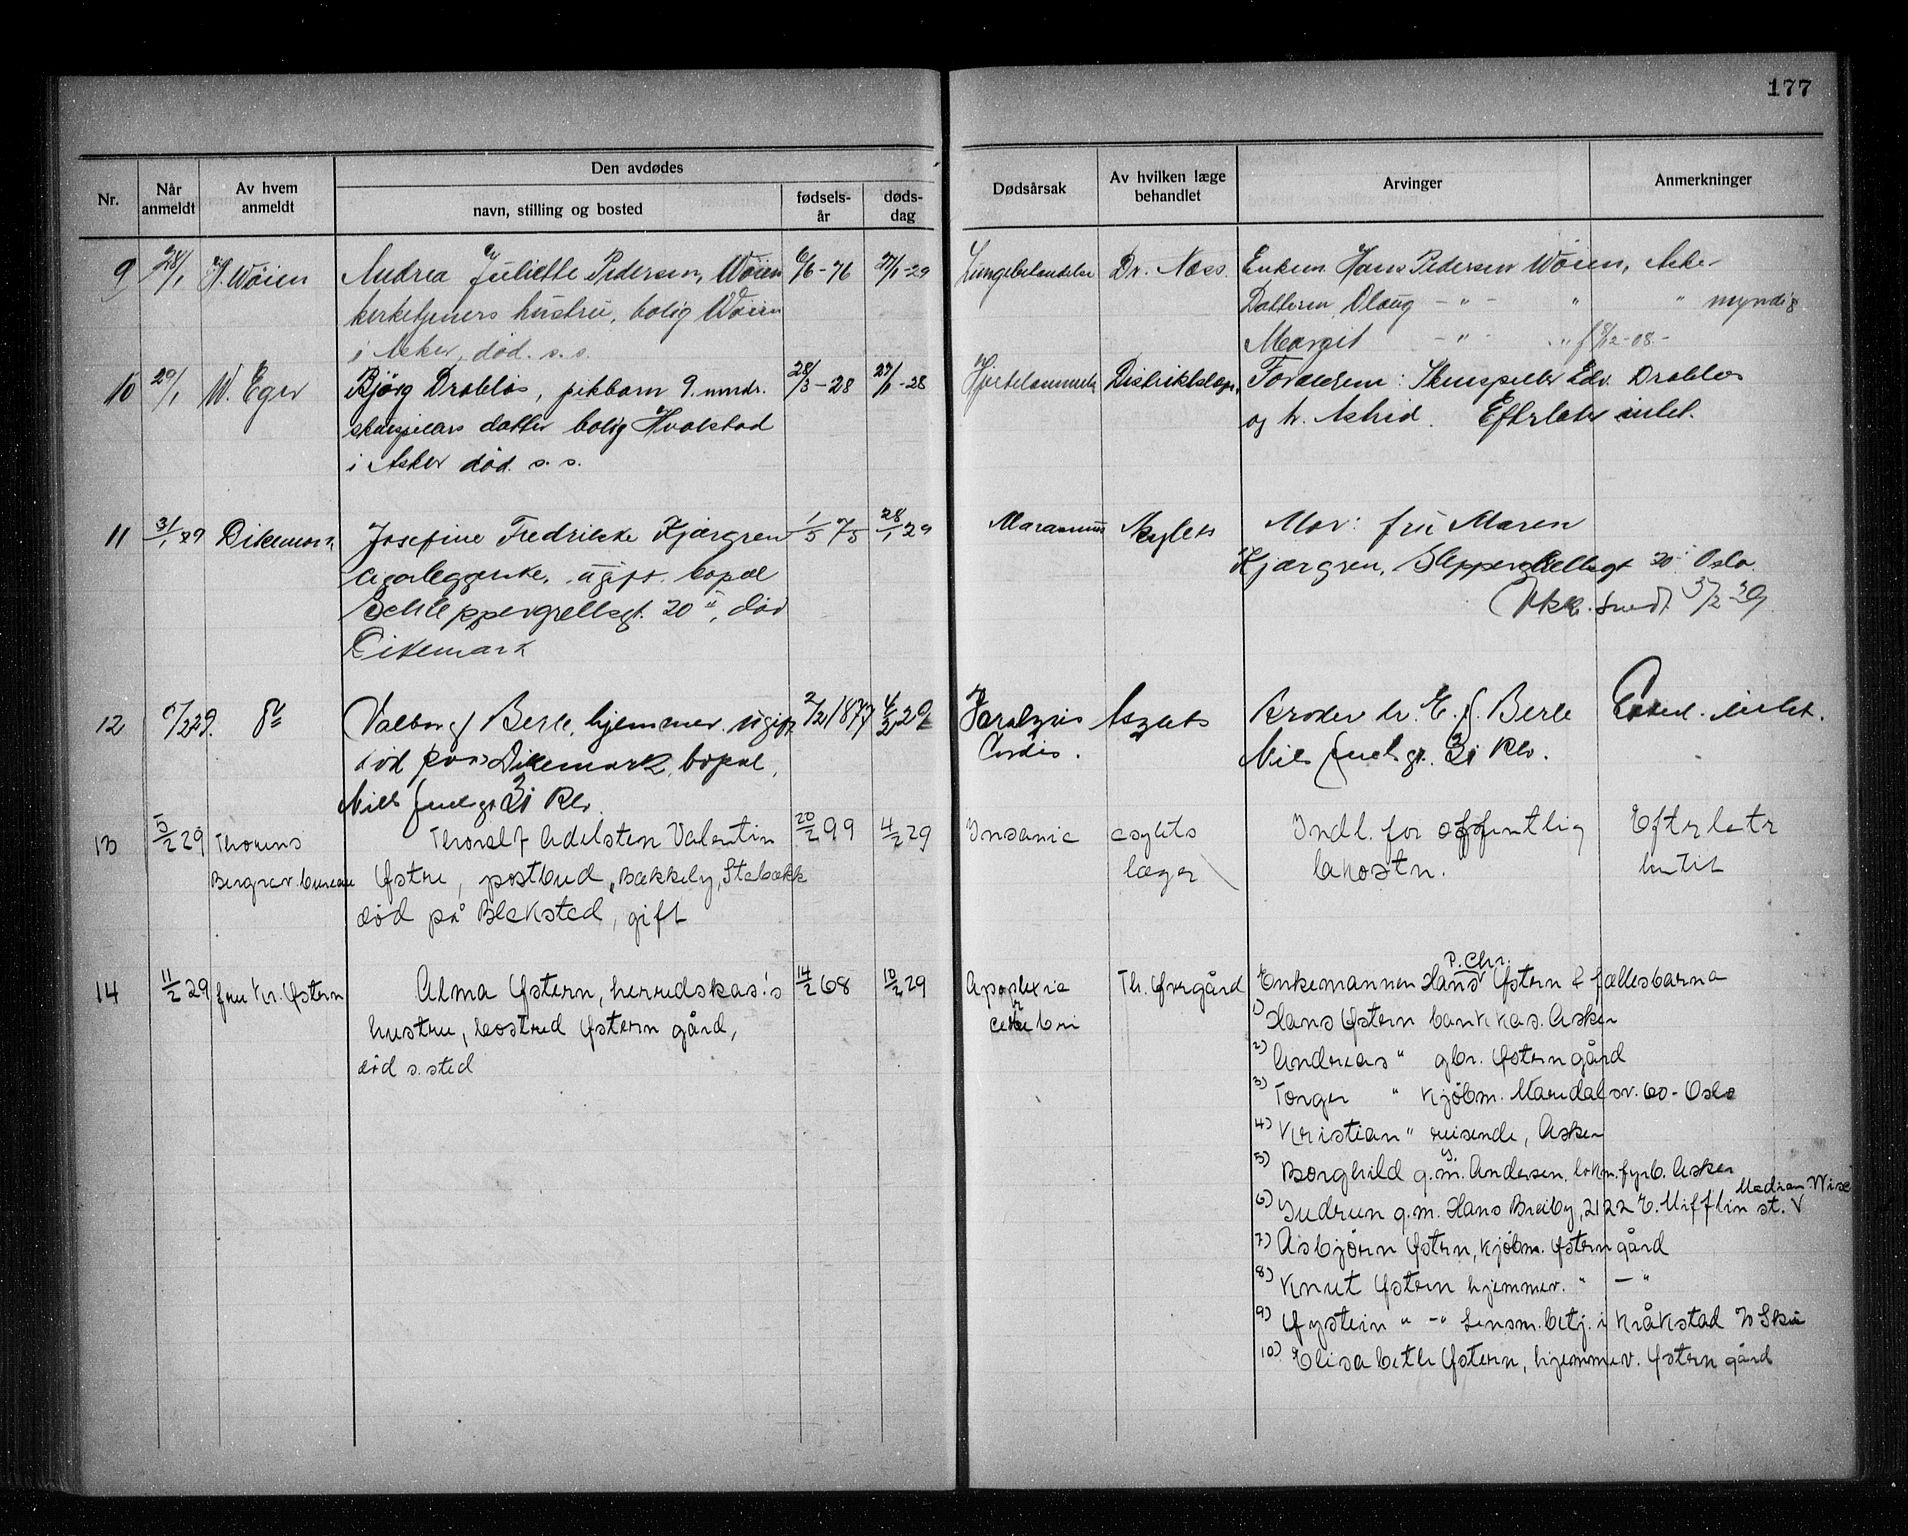 177
Nr.
Når anmeldt
Av hvem anmeldt
Den avdødes
navn, stilling og bosted
fødsels-år
døds-dag
Dødsårsak
Av hvilken læge behandlet
Arvinger
Anmerkninger
9 28/1 H. Wöien Andrea Juliette Pedersen, Wöien 6/6-76 27/1-29 Dr. Næss. Enkem. Hans Pedersen Wöien, Asker
kirketjeners hustru, bolig Wöien Datteren Olaug - " - " " myndig
i Asker, död. s. s. Margit - " - " f 8/12-08-
10 29/1 W. Eger Bjørg Drabløs, pikbarn 9. mndr. 28/3-28 27/1-28 Distriktslægen Forældrene: Skuespiller Edv. Drabløs
skuespillers datter bolig Hvalstad og h. Astrid. Efterlater intet.
i Asker död. s. s.
11 31/1 29 Dikemark Josefine Fredrikke Kjærgren 1/5 75 28/1 29 Marasmus Asylets Mor: fru Maren
ugift. bopæl Kjærgren, Sleppegrellsgt 20 Oslo.
Schleppegrellsgt. 20 II, död 5/2 29
Dikemark
12 5/2 29. do Valborg Berle, hjemmev. ugift 2/2 1877 4/2 29 Paralysis Asylets Broder hr. E. J. Berle intet.
död paa Dikemark, bopæl, Cordis. Niels Juelsgt. 31 Kv.
Niels Juelsgt 31 Kv.
13 5/2 29 Thorens Thoralf Adelsten Valentin 20/2 99 4/2 29 Insanie asylets Indl. for offentlig Efterlatr
Begrav. bureau Østre, postbud, "Bækkely, Stabækk læger bekostn. intet
død på Blakstad, gift
14 11/2 29 fru Kr. Østern Alma Østern, herredskas.'s 14/2 68 10/2 29 Apoplexia Th. Øvergård Enkemannen Hans P. Chr. Østern & fællesbarna
hustru, bosted Østern gård, cerebri 1) Hans Østern bankkas. Asker
død s. sted
2) Andreas " gbr. Østern gård
3) Torger " kjøbm. Maridalsv. 60 - Oslo
4) Kristian " reisende, Asker
5) Borghild g. m. Andersen, lokm.fyrb. Asker
6) Gudrun g.m. Hans Breiby, 2122 E. Mifflin st. Madison Wise
7) Asbjørn Østern, kjøbm. Østern gård
8) Knut Østern hjemmev. " - "
9) Øystein " - " Lensm.betj. i Kråkstad
10) Elisabeth Østern, hjemmev. Østern gård